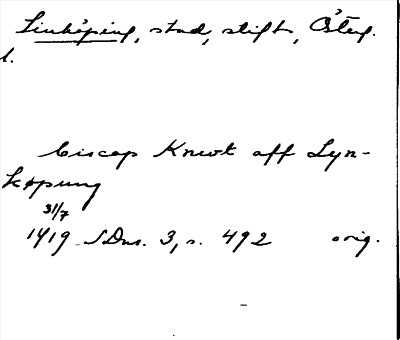 Linköping, stad, stift, Österg.
l.
biscop Knwt aff Lyn-
køpung
31/7
1419 SDns. 3, s. 492 orig.